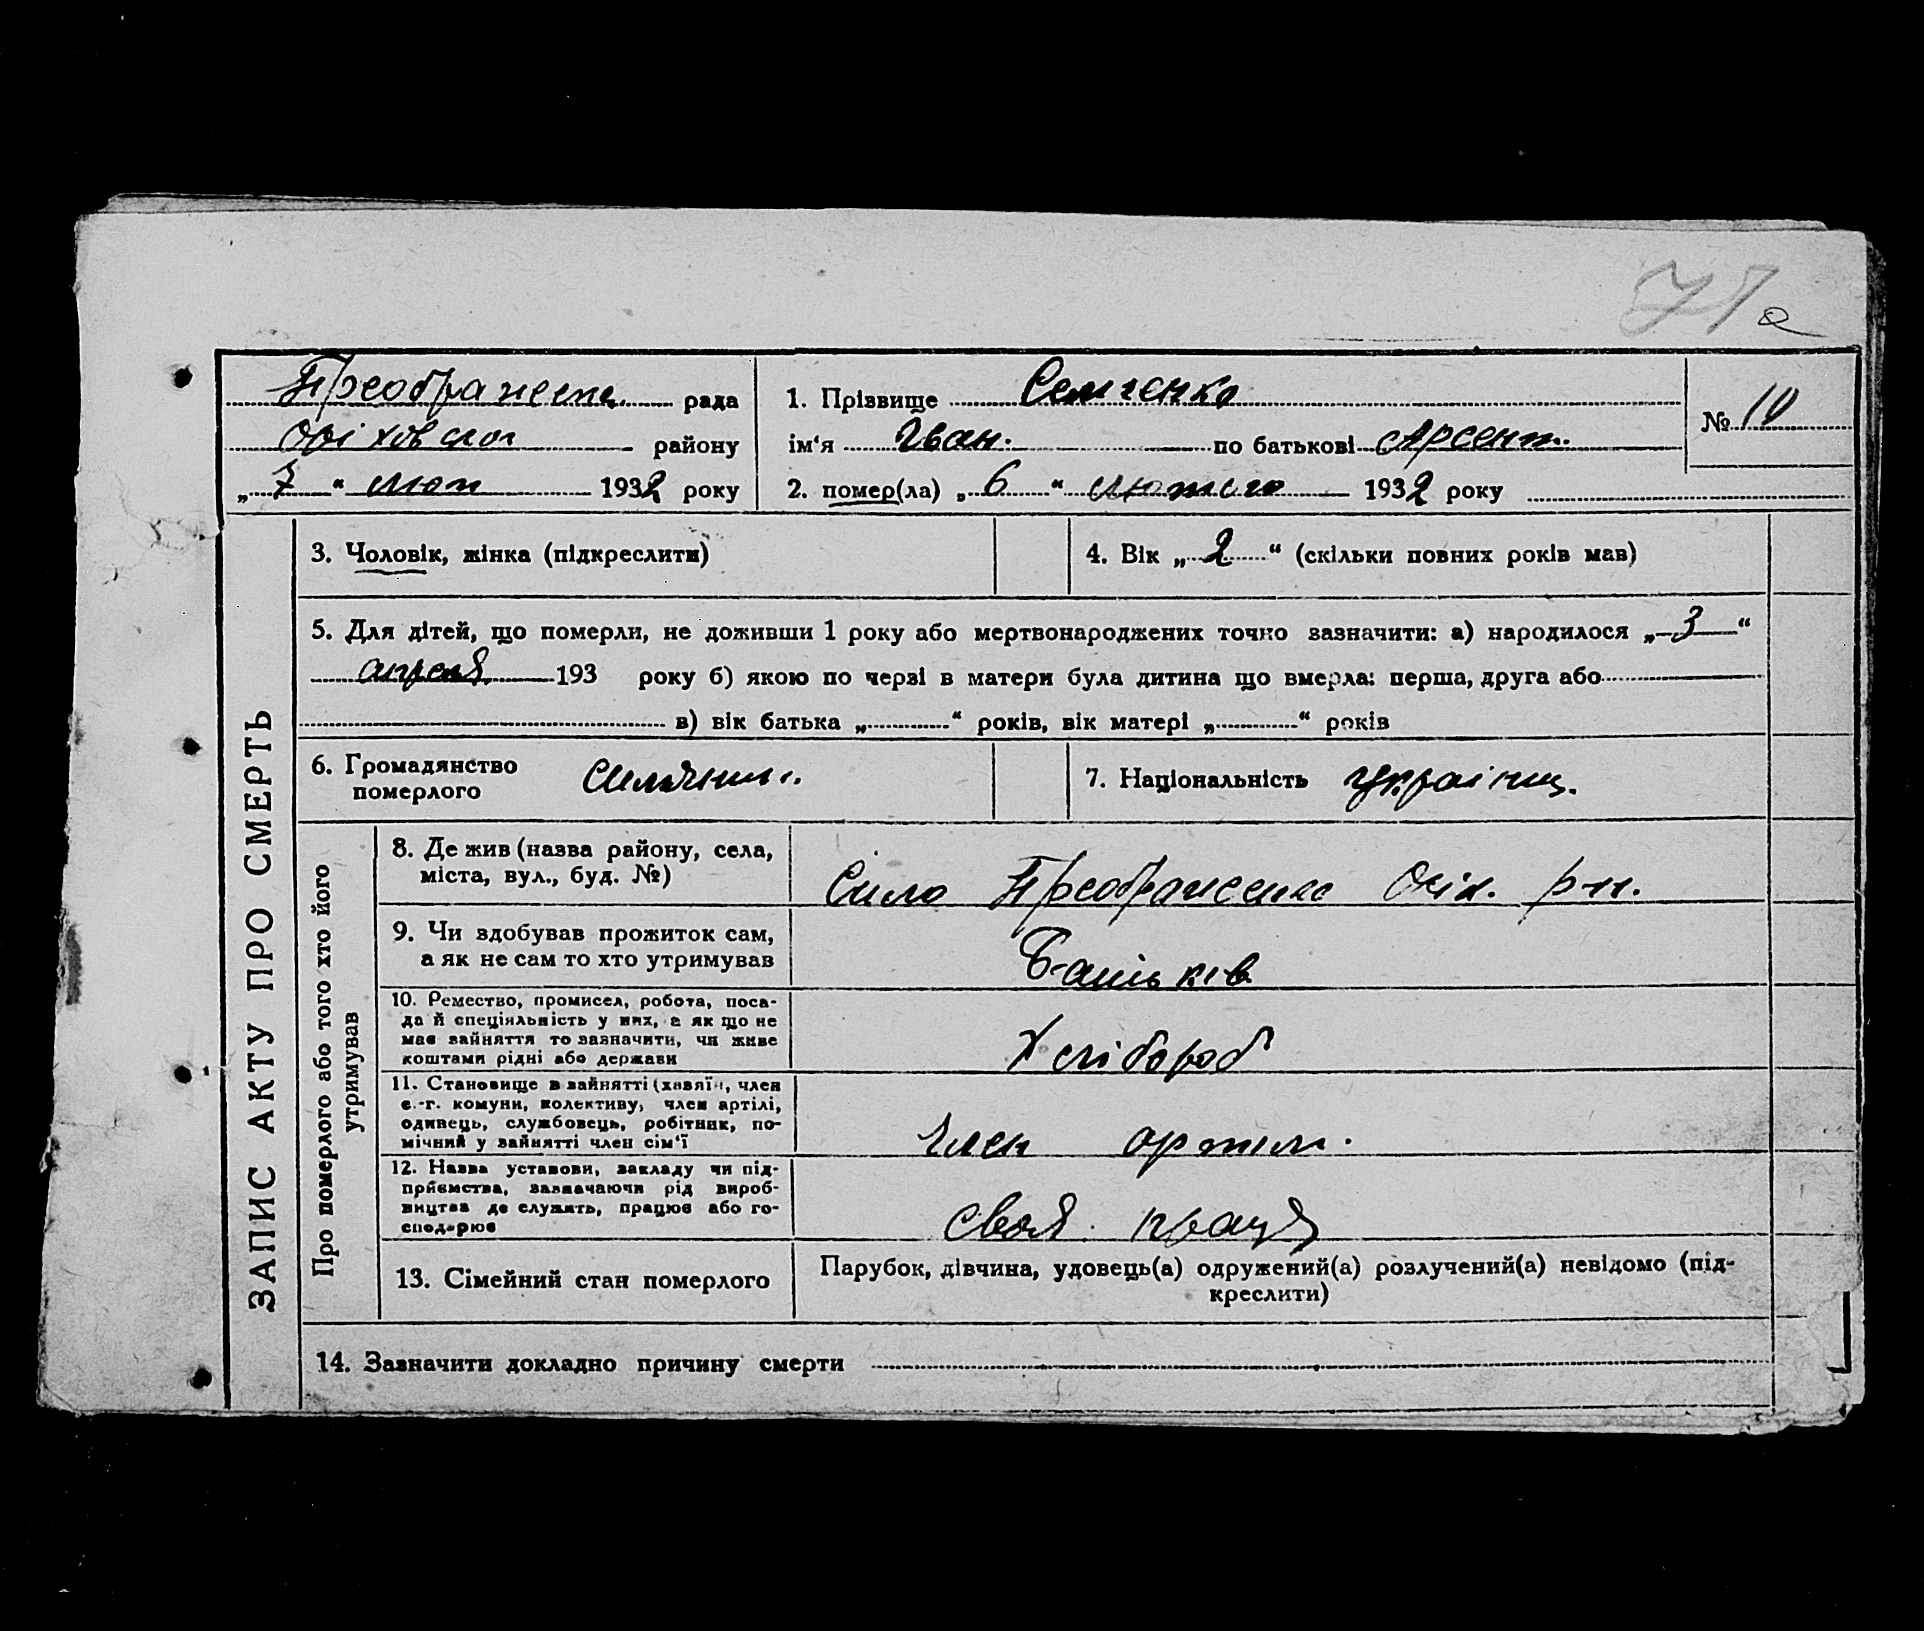 71а
Преображенк. рада
Оріховског району
„ 7 “ лют 1932 року
1. Прізвище Семченко
ім‘я Іван. по батькові Арсент.
2. помер(ла) „ 6 “ лютого 1932 року
№ 10
ЗАПИС АКТУ ПРО СМЕРТЬ
3. Чоловік, жінка (підкреслити)
4. Вік „ 2 “ (скільки повних років мав)
5. Для дітей, що померли, не доживши 1 року або мертвонароджених точно зазначити: а) народилося „ 3 “
апреля 193 року б) якою по черзі в матери була дитина що вмерла: перша, друга або
в) вік батька „ “ років, вік матері „ “ років
6. Громадянство
померлого
7. Національність україниц.
Про померлого або того хто його
утримував
8. Де жив (назва району, села,
міста, вул., буд. №)
Село Преображенка Оріх. р-н.
9. Чи здобував прожиток сам,
а як не сам то хто утримував
Батьків
10. Ремество, промисел, робота, поса-
да й спеціяльність у них, а як що не
має зайняття то зазначити, чи живе
коштами рідні або держави
Хлібороб
11. Становище в зайнятті (хазяїн, член
с.-г. комуни, колективу, член артілі,
одинець, службовець, робітник, по-
мічний у зайнятті член сім‘ї
Член артіли.
12. Назва установи, закладу чи під-
приємства, зазначаючи рід вироб-
ництва де служить, працює або го-
сподарює
своя праця
13. Сімейний стан померлого
Парубок, дівчина, удовець(а) одружений(а) розлучений(а) невідомо (під-
креслити)
14. Зазначити докладно причину смерти